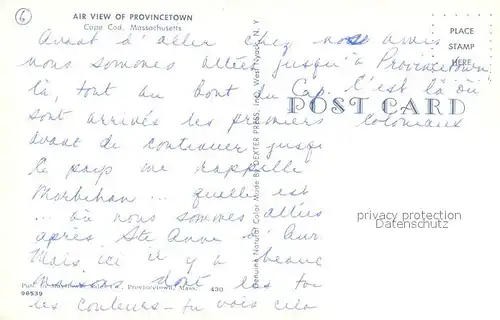 6
AIR VIEW OF PROVINCETOWN
Cape Cod, Massachusetts
PLACE
STAMP
HERE
Avant d'aller chez nos amis
nous sommes allés jusqu'à Provincetown
là, tout au bout du Cap. C'est là où
POST CARD
sont arrivés les premiers coloniaux
avant de continuer jusqu
le pays me rappelle
Morbihan ... quelle est
... où nous sommes allées
après Ste Anne d'Aur
Mais ici il y a beauc
maisons dont les to
Provincetown, Mass. 430
98539
les couleurs - tu vois cela
Genuine Natural Color Made By DEXTER PRESS, Inc., West Nyack, N. Y.
privacy protection
Datenschutz